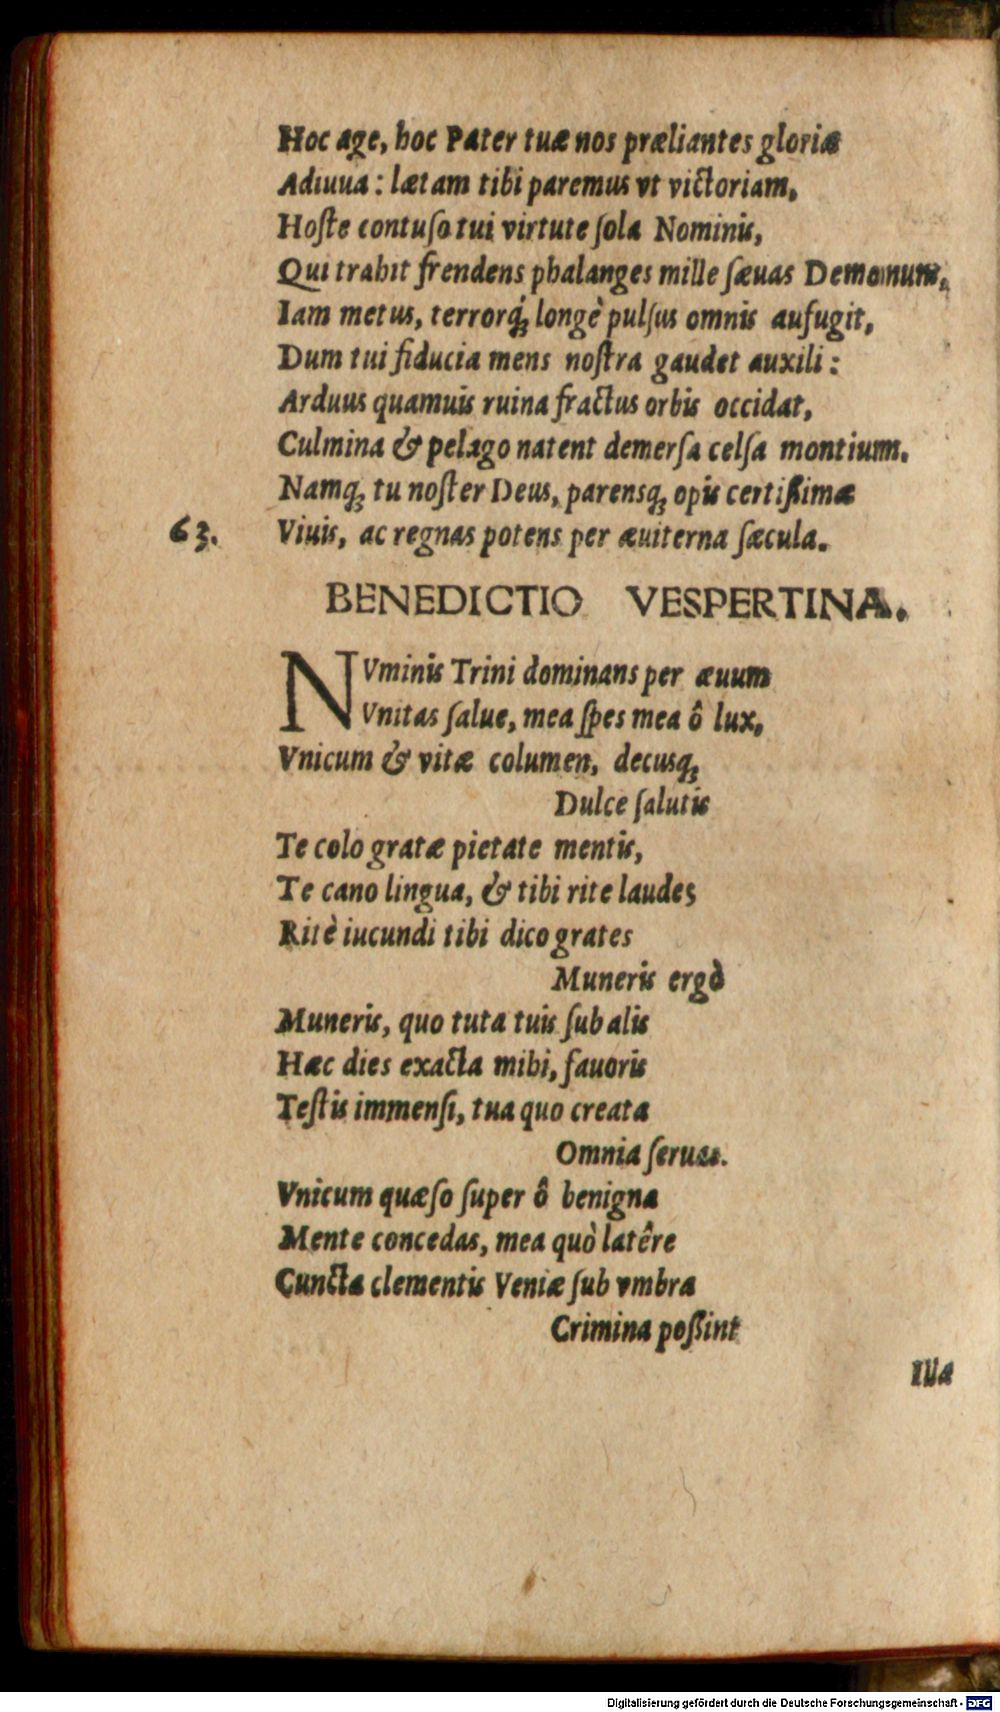 Hoc age, hoc Pater tuæ nos præliantes gloriæ
Adiuua: lætam tibi paremus vt victoriam,
Hoſte contuſo tui virtute ſola Nominis,
Qui trahit frendens phalanges mille ſæuas Demonum,
Iam metus, terrorq́ꝫ longè pulſus omnis aufugit,
Dum tui fiducia mens noſtra gaudet auxili:
Arduus quamuis ruina fractus orbis occidat,
Culmina & pelago natent demerſa celſa montium.
Namqꝫ tu noſter Deus, parensqꝫ opis certiſſimæ
63. Viuis, ac regnas potens per æuiterna ſæcula.
BENEDICTIO VESPERTINA.
NVminis Trini dominans per æuum
Vnitas ſalue, mea ſpes mea ô lux,
Vnicum & vitæ columen, decusqꝫ
Dulce ſalutis
Te colo gratæ pietate mentis,
Te cano lingua, & tibi rite laudes
Ritè iucundi tibi dico grates
Muneris ergò
Muneris, quo tuta tuis ſub alis
Hæc dies exacta mihi, fauoris
Teſtis immenſi, tua quo creata
Omnia ſeruas.
Vnicum quæſo ſuper ô benigna
Mente concedas, mea quò latêre
Cuncta clementis Veniæ ſub vmbra
Crimina poſſint
Illa
Digitalisierung gefördert durch die Deutsche Forschungsgemeinschaft - DFG